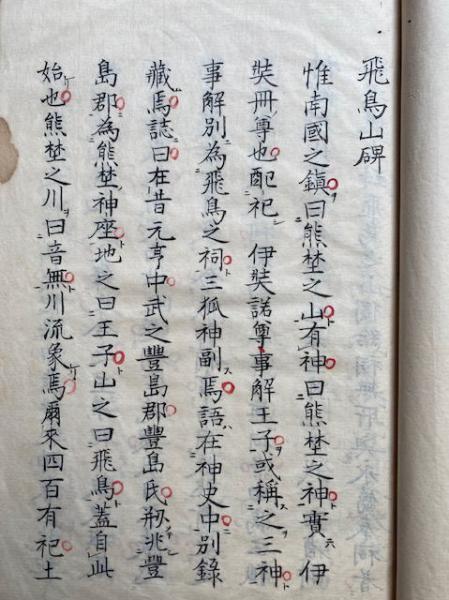 飛鳥山碑
惟南國之鎮曰熊埜之山有神曰熊埜之神實 伊
弉冊尊也配祀 伊弉諾尊事解王子或稱之三神
事解別為飛鳥之祠三狐神副焉語在神史中別錄
藏焉誌曰在昔元亨中武之豐島郡豐島氏剏兆豐
島郡為熊埜神座地之曰王子山之曰飛鳥蓋自此
始也熊埜之川曰音無川流象焉爾來四百有祀土